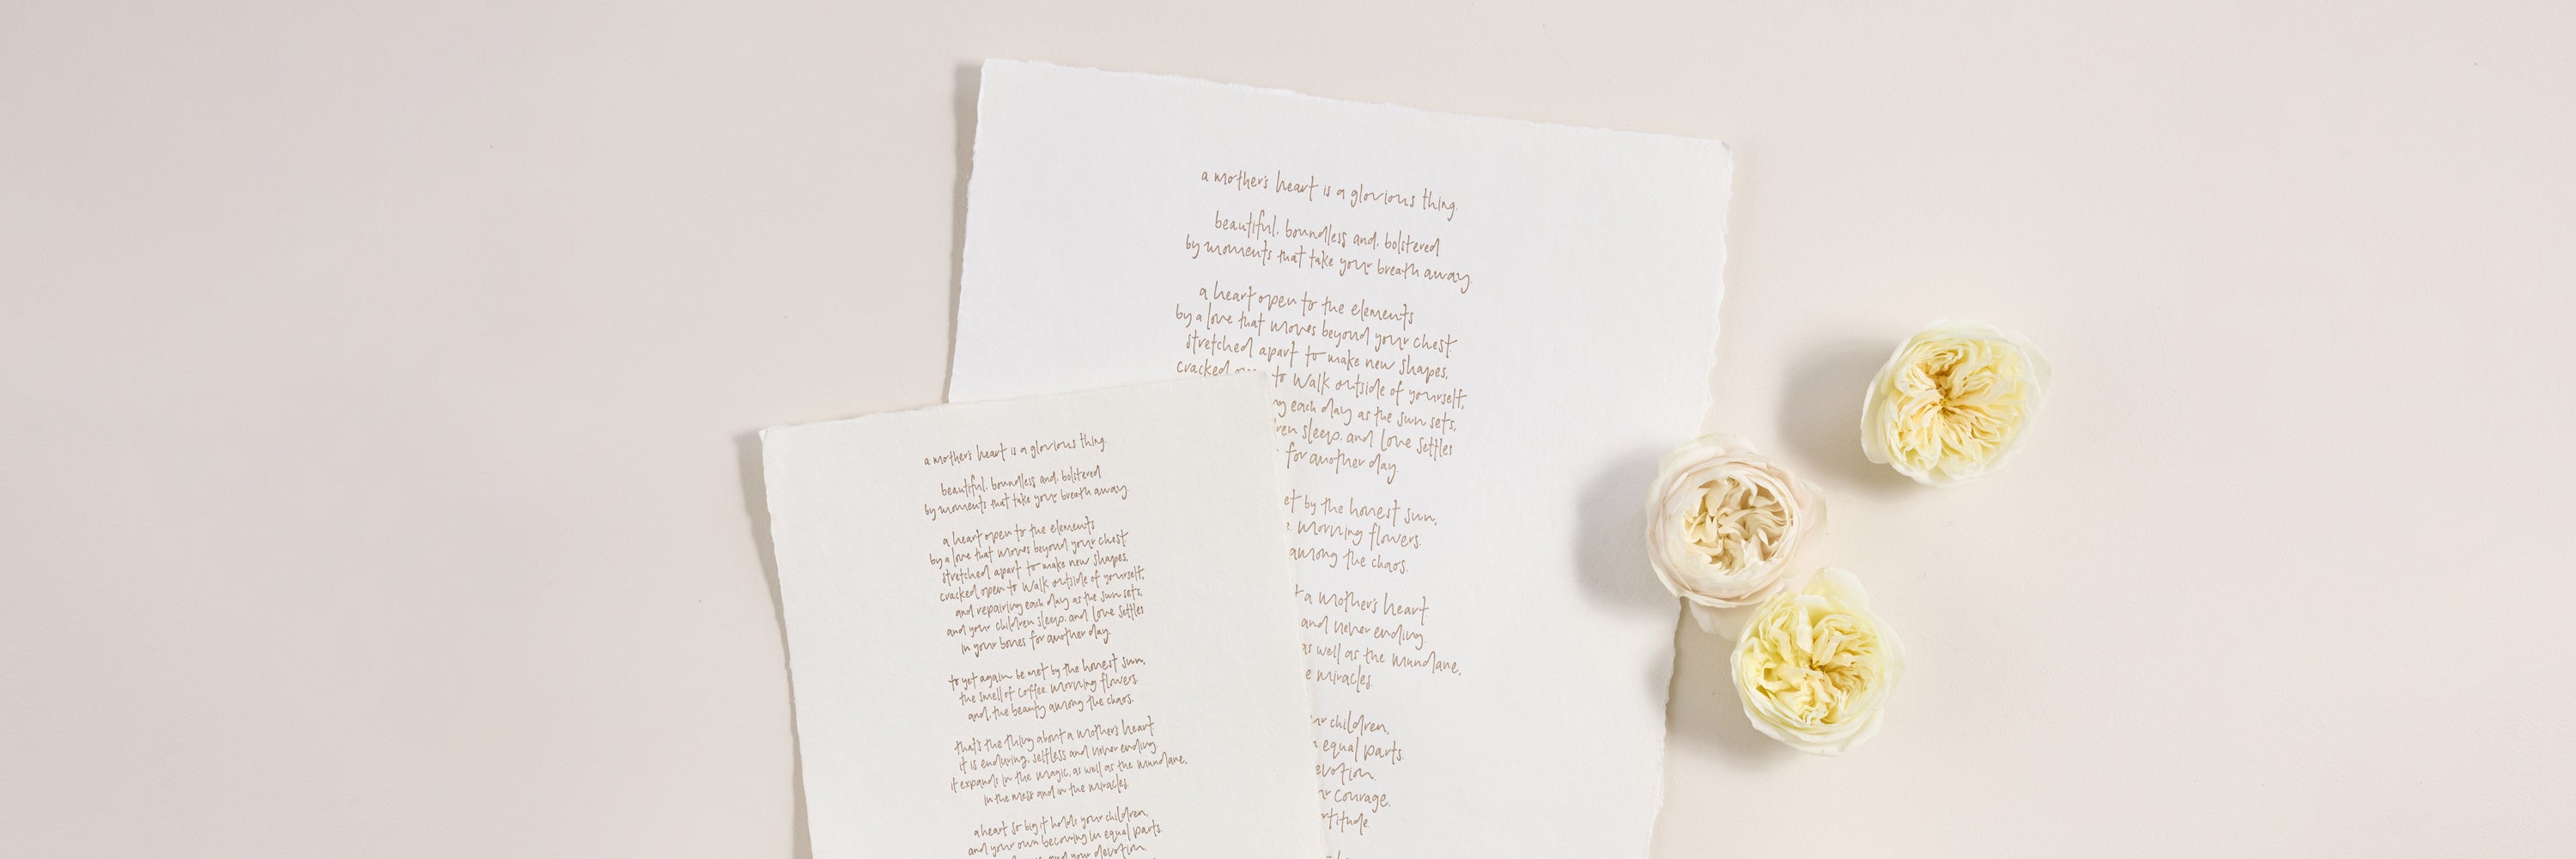 a mother's heart is a glorious thing.
beautiful. boundless and. bolstered
by moments that take your breath away.
a heart open to the elements
by a love that moves beyond your chest
stretched apart to make new shapes.
cracked to walk outside of yourself,
each day as the sun sets,
sleep. and love settles
for another day.
by the honest sun,
morning flowers.
among the chaos.
a mother's heart
and never ending.
as well as the mundane,
miracles.
children,
equal parts.
courage.
a mother's heart is a glorious thing.
beautiful. boundless and. bolstered
by moments that take your breath away.
a heart open to the elements
by a love that moves beyond your chest
stretched apart to make new shapes.
cracked open to walk outside of yourself,
and repairing each day as the sun sets,
and your children sleep. and love settles
in your bones for another day.
to yet again be met by the honest sun,
the smell of coffee. morning flowers.
and. the beauty among the chaos.
that's the thing about a mother's heart
it is enduring. selfless and never ending.
it expands in the magic. as well as the mundane,
in the mess and in the miracles.
a heart so big it holds your children,
and your own becoming in equal parts.
and your devotion.